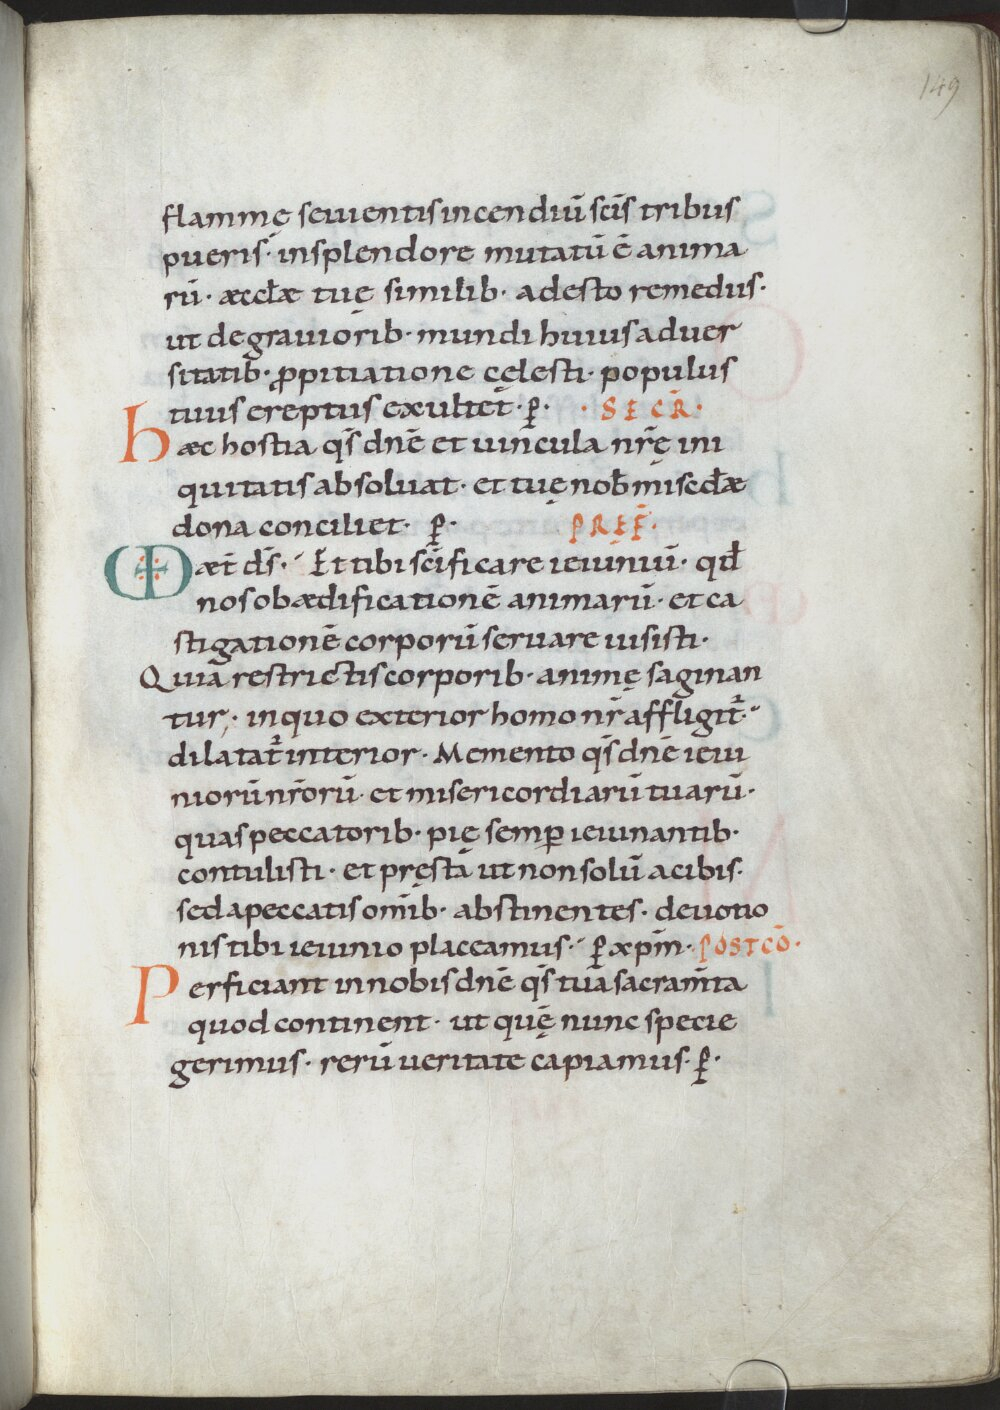 149
flammę seuientis incendiū scīs tribus
pueris· in splendore mutatū ē anima
rū· æccłæ tuę similib· adesto remediis·
ut de grauiorib· mundi huius aduer
sitatib· ꝓpitiatione cęlesti· populus
tuus ereptus exultet· ꝑ· · SECR̄·
hæc hostia qs̄ dnē et uincula nr̄ę ini
quitatis absoluat· et tuę nob̄ misc̄dæ
dona conciliet· ꝑ· PREF̄·
æt̄ ds̄· Et tibi scīficare ieiuniū· qđ
nos ob ædificationē animarū· et ca
stigationē corporū seruare iusisti·
Quia restrictis corporib· animę saginan
tur· in quo exterior homo nr̄ affligit̄·
dilatat̄ interior· Memento qs̄ dnē ieiu
niorū nr̄orū· et misericordiarū tuarū·
quas peccatorib· pię semꝑ ieiunantib·
contulisti· et pręstā ut non solū a cibis·
sed a peccatis om̄ib· abstinentes· deuotio
nis tibi ieiunio placeamus· ꝑ xp̄m· POSTCŌ·
Perficiant in nobis dnē qs̄ tua sacram̄ta
quod continent· ut quę nunc specie
gerimus· rerū ueritate capiamus· ꝑ·